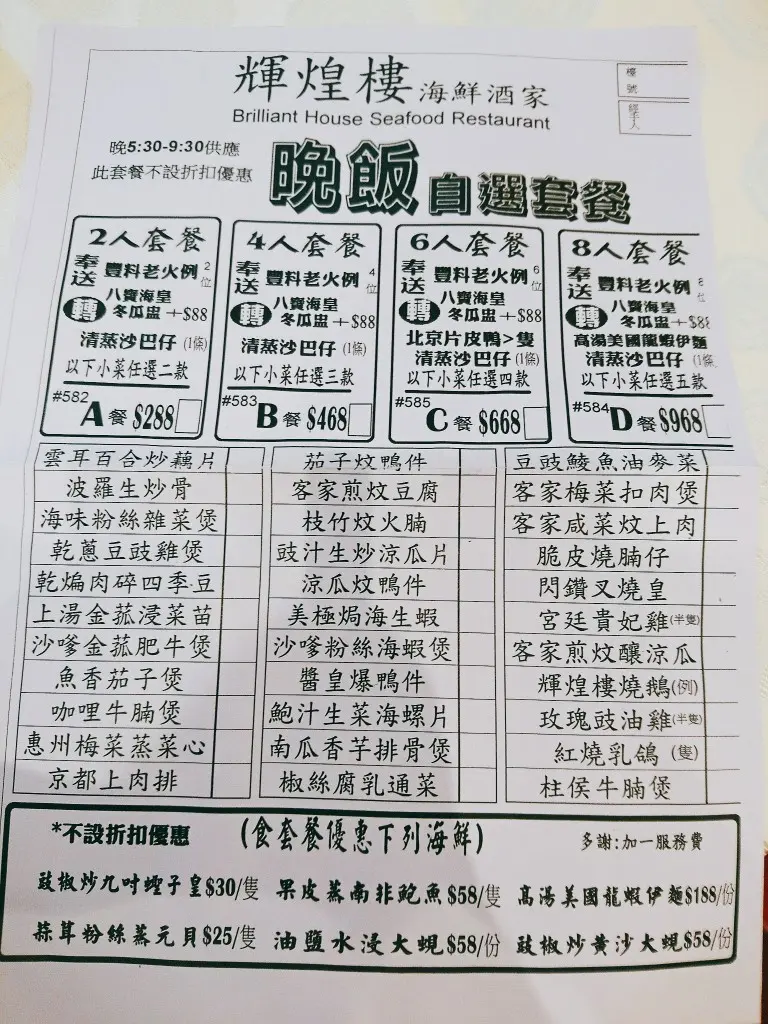 輝煌樓海鮮酒家
樓號
經手人
Brilliant House Seafood Restaurant
晚5:30-9:30供應
此套餐不設折扣優惠
晚飯自選套餐
2人套餐
奉送 豐料老火例 2位
轉 八寶海皇冬瓜盅 +$88
清蒸沙巴仔 (1條)
以下小菜任選二款
#582
A餐 $288
4人套餐
奉送 豐料老火例 4位
轉 八寶海皇冬瓜盅 +$88
清蒸沙巴仔 (1條)
以下小菜任選三款
#583
B餐 $468
6人套餐
奉送 豐料老火例 6位
轉 八寶海皇冬瓜盅 +$88
北京片皮鴨>隻
清蒸沙巴仔 (1條)
以下小菜任選四款
#585
C餐 $668
8人套餐
奉送 豐料老火例
轉 八寶海皇冬瓜盅 +$88
高湯美國龍蝦伊麵
清蒸沙巴仔 (1條
以下小菜任選五款
#584
D餐 $968
雲耳百合炒藕片 茄子炆鴨件 豆豉鯪魚油麥菜
波羅生炒骨 客家煎炆豆腐 客家梅菜扣肉煲
海味粉絲雜菜煲 枝竹炆火腩 客家咸菜炆上肉
乾蔥豆豉雞煲 豉汁生炒涼瓜片 脆皮燒腩仔
乾煸肉碎四季豆 涼瓜炆鴨件 閃鑽叉燒皇
上湯金菰浸菜苗 美極焗海生蝦 宮廷貴妃雞(半隻)
沙嗲金菰肥牛煲 沙嗲粉絲海蝦煲 客家煎炆釀涼瓜
魚香茄子煲 醬皇爆鴨件 輝煌樓燒鵝(例)
咖哩牛腩煲 鮑汁生菜海螺片 玫瑰豉油雞(半隻)
惠州梅菜蒸菜心 南瓜香芋排骨煲 紅燒乳鴿 (隻)
京都上肉排 椒絲腐乳通菜 柱侯牛腩煲
*不設折扣優惠 (食套餐優惠下列海鮮) 多謝:加一服務費
豉椒炒九吋蟶子皇$30/隻 果皮蒸南非鮑魚$58/隻 高湯美國龍蝦伊麵$188/份
蒜茸粉絲蒸元貝$25/隻 油鹽水浸大蜆$58/份 豉椒炒黃沙大蜆$58/份